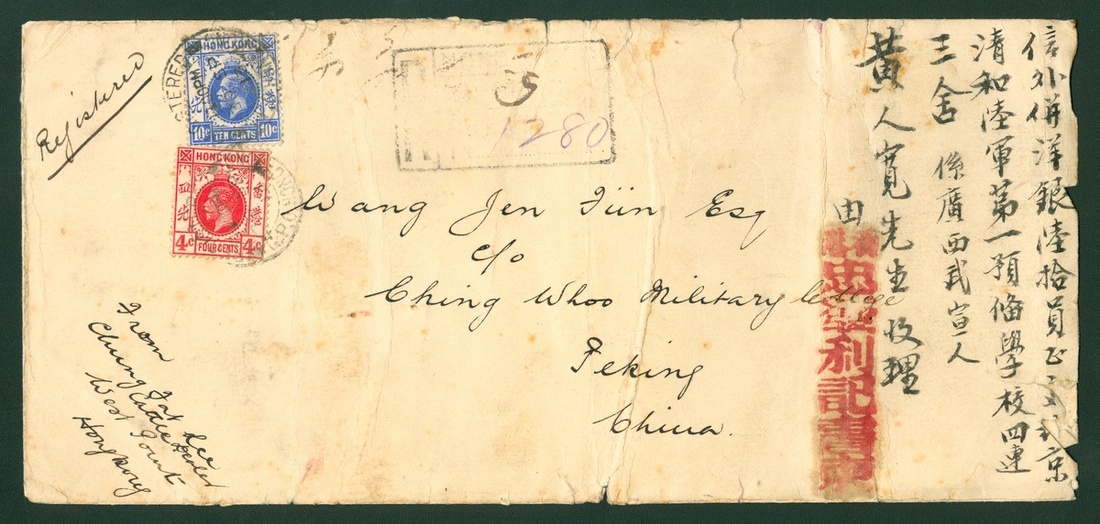 Registered
HONG KONG
10c TEN CENTS 10c
HONG KONG
香港
4c FOUR CENTS 4c
1280
Wang Jen Esq
c/o
Ching Whoo Military College
Peking
China.
From
Chung Tat
West Point
Hongkong
信外併洋銀陸拾員正
北京
清和陸軍第一預俻學校四連
三舍 係廣西武宣人
黃人寬先生收理
由
忠 利記書